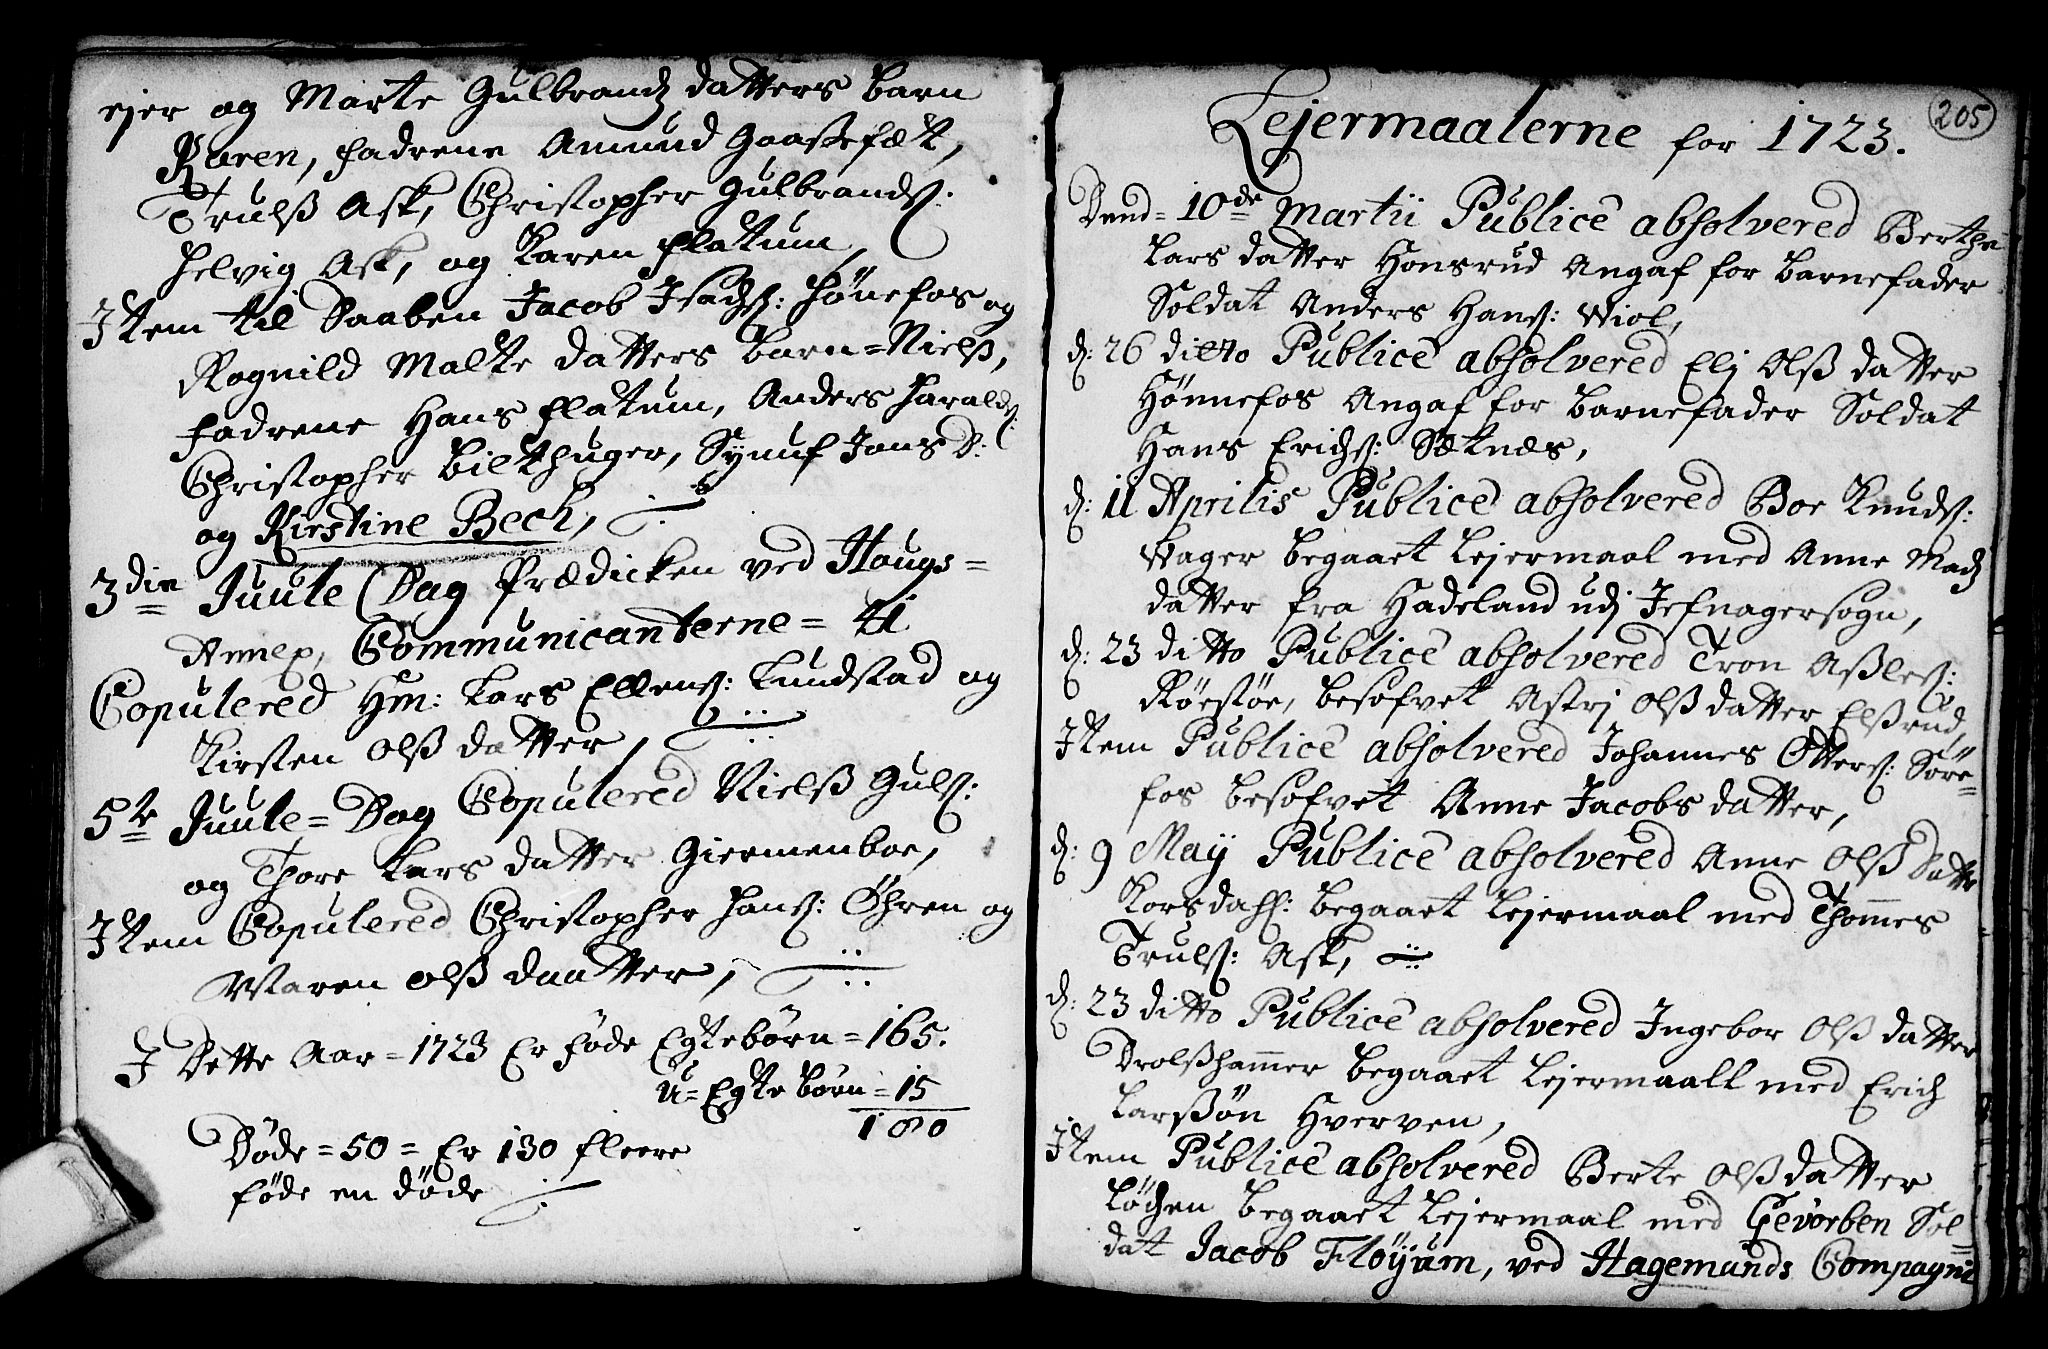 ejer og Marte Gulbrandz datters barn
Karen, fadrene Amund Gaasefæt,
Trulß Ask, Christopher Gulbrandß:
Helvig Ask, og Karen Flatum,
Item til Daaben Jacob Isachß: Hönefos og
Rognild Malte datters barn = Nielß,
fadrene Hans Flatum, Anders Haraldß:
Christopher Bilthuger, Synuf Jons D:
og Kirstine Bech,
3die Juule Dag Prædicken ved Hougs=
Annex, Communicanterne = 41
Copulered Hm: Lars Ellenß: Lundstad og
Kirsten Olß datter,
5te Juule = Dag Copulered Nielß Gulß:
og Thore Lars datter Giermenboe,
Item Copulered Christopher Hanß: Öhren og
Maren Olß daatter,
I Dette Aar = 1723 Er föde Egtebörn = 165.
U = Egte börn = 15
180
Döde = 50 = Er 130 fleere
föde en döde
205
Lejermaalerne for 1723.
Dend = 10de Martii Publicè absolvered Berthe
Lars datter Honsrud Angaf for Barnefader
Soldat Anders Hanß: Wiol,
d: 26 ditto Publicè absolvered Elj Olß datter
Hönnefos Angaf for Barnefader Soldat
Hans Erichß: Sætnæs,
d: 11 Aprilis Publicè absolvered Boe Knudß:
Wager begaaet Lejermaal med Anne Madz
datter fra Hadeland udj Jefnagersogn,
d: 23 ditto Publicè absolvered Tron Aßleß:
Röestöe, besofvet Astrj Olß datter Elßrud,
Item Publicè absolvered Johannes Otterß: Söre=
fos besofvet Anne Jacobs datter,
d: 9 Maij Publicè absolvered Anne Olß datter
Korsdahl: begaaet Lejermaal med Thom̄es
Trulß: Ask,
d: 23 ditto Publicè absolvered Ingebor Olß datter
Drolßham̄er begaaet Lejermaall med Erich
Larßön Hverven,
Item Publicè absolvered Berte Olß datter
Löchen begaaet Lejermaal med Gevorben Sol=
dat Jacob Flöyum, ved Hagemunds Compagnie